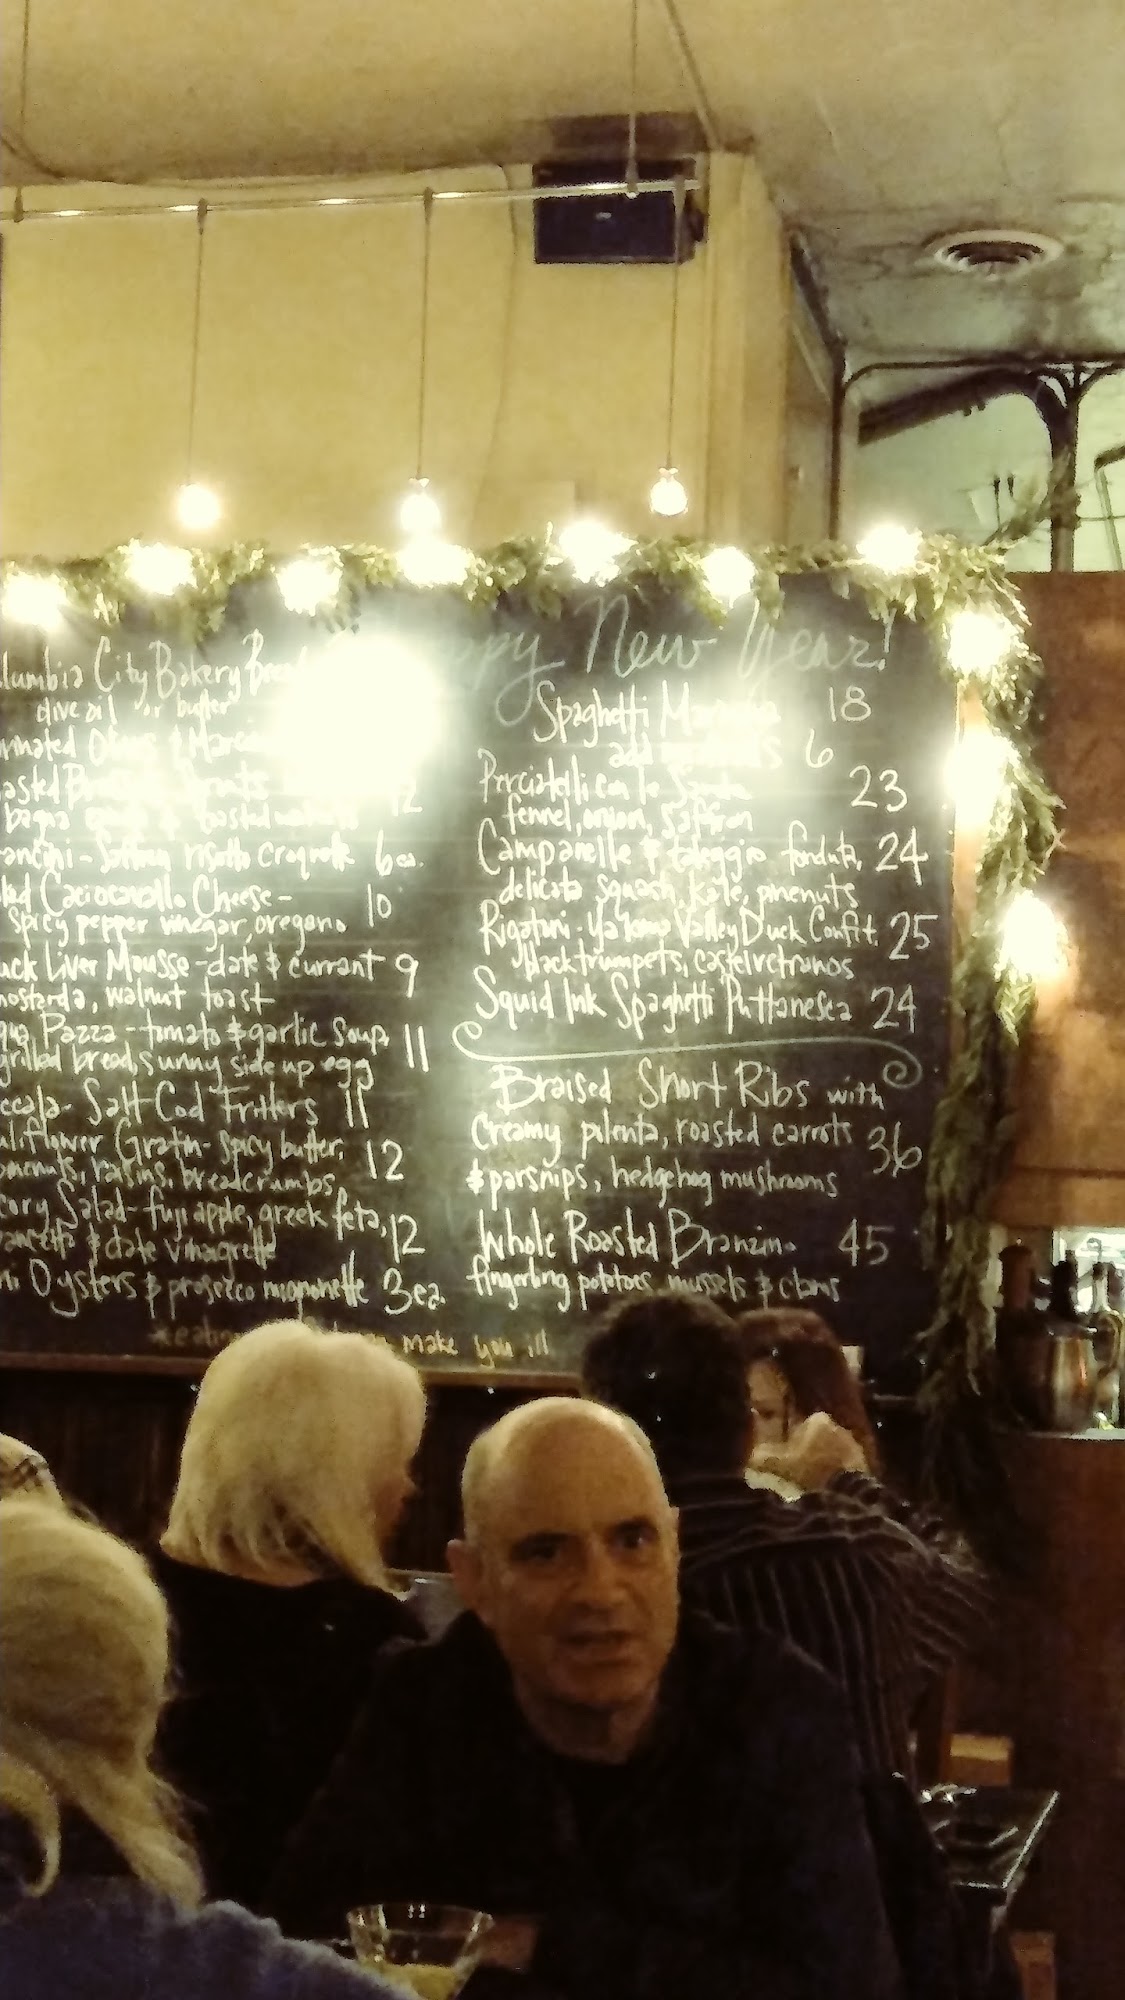 lumbia City Bakery Bread
olive oil or butter
rinated Olives & Marco
asted Brussel Sprouts 12
bagna & toasted
ancini - Saffron risotto croquette 6 ea.
Caciocavallo Cheese - 10
spicy pepper vinegar, oregano
uck Liver Mousse - date & currant 9
mostarda, walnut toast
qua Pazza - tomato & garlic soup, 11
grilled bread, sunny side up egg
ccala - Salt Cod Fritters 11
uliflower Gratin - spicy butter, 12
raisins, breadcrumbs
cory Salad - fuji apple, greek feta, 12
pancetta & date vinagrette
Oysters & prosecco mignonette 3 ea.
make you ill
ppy New Year!
Spaghetti 18
add 6
Perciatelli con le Sarde 23
fennel, onion, saffron
Campanelle & taleggio fonduta, 24
delicata squash, kale, pinenuts
Rigatoni - Yakima Valley Duck Confit, 25
black trumpets, castelvetranos
Squid Ink Spaghetti Puttanesca 24
Braised Short Ribs with
creamy polenta, roasted carrots 36
& parsnips, hedgehog mushrooms
Whole Roasted Branzino 45
fingerling potatoes, mussels & clams